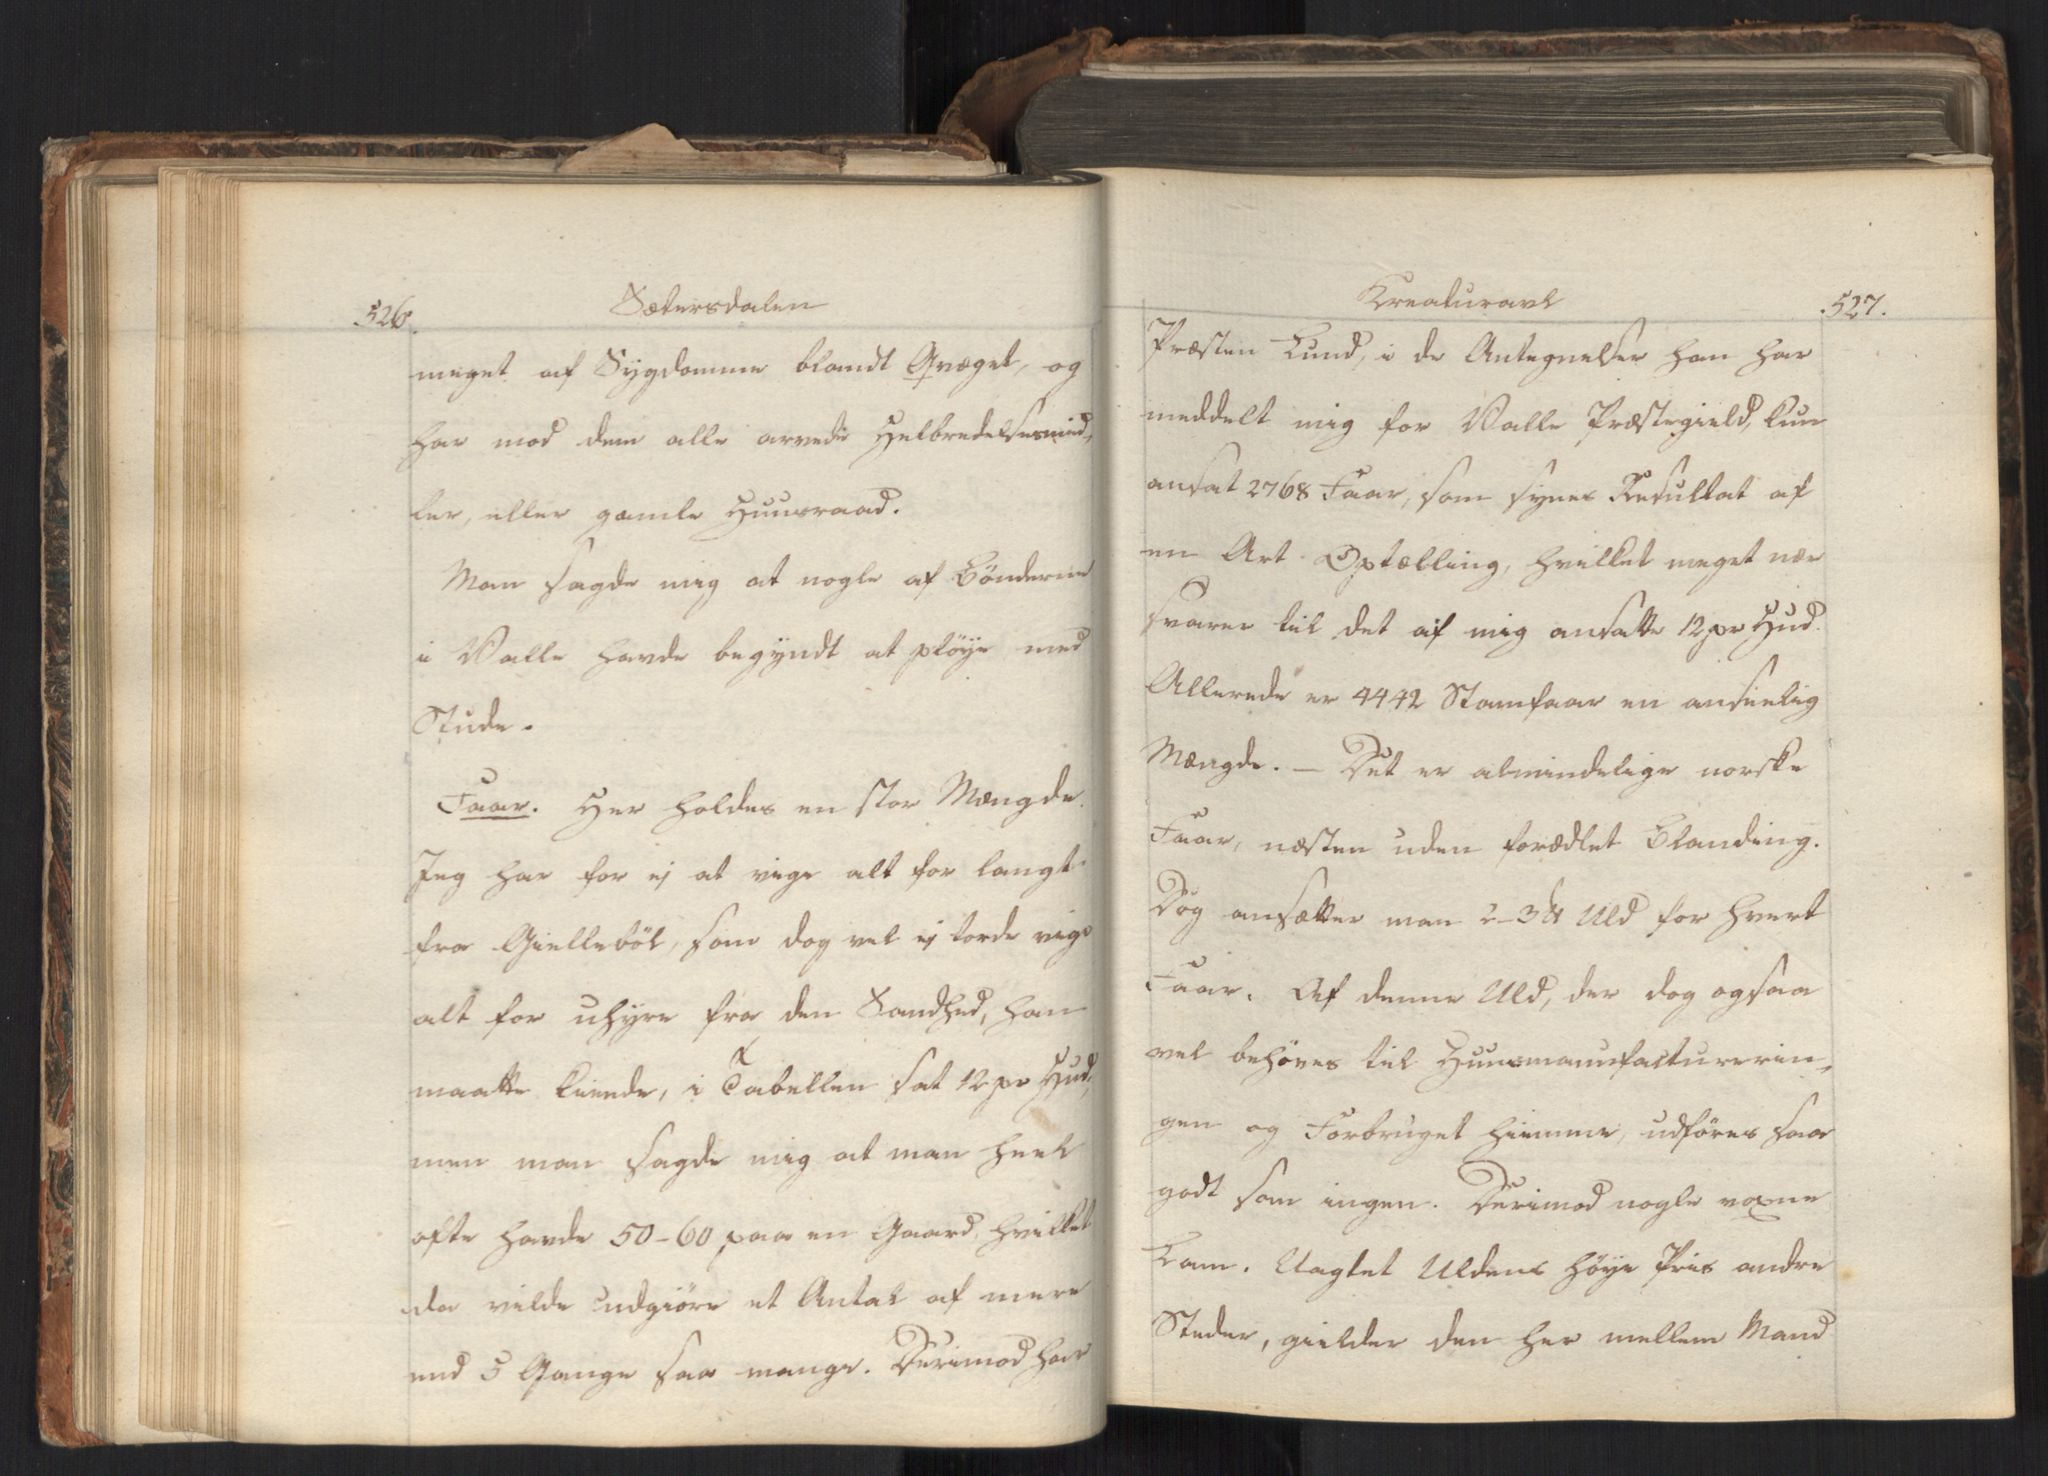 526.
Sætersdalen
meget af Sygdomme blandt Qvæget, og
har mod dem alle arvede Helbredelsesmid-
ler, eller gamle Huusraad.
Man sagde mig at nogle af Bönderne
i Valle havde begyndt at pløye med
Stude.
Faar. Her holdes en stor Mængde.
Jeg har for ej at vige alt for langt
fra Giellebøl, som dog vel ej torde vige
alt for uhyre fra den Sandhed, han
maatte kiende, i Tabellen sat 12 pr Hud,
men man sagde mig at man heel
ofte havde 50-60 paa en Gaard, hvilket
da vilde udgiöre et Antal af mere
end 5 Gange saa mange. Derimod har
Kreaturavl
527.
Præsten Lund, i de Antegnelser han har
meddelt mig for Valle Præstegield, kun
ansat 2768 Faar, som synes Resultat af
en Art Optælling, hvilket meget nær
svarer til det af mig ansatte 12 pr Hud.
Allerede er 4442 Stamfaar en anseelig
Mængde. — Det er almindelige norske
Faar, næsten uden forædlet Blanding.
Dog ansætter man 2-3 ℔ Uld for hvert
Faar. Af denne Uld, der dog ogsaa
vel behöves til Huusmanufacturerin-
gen og Forbruget hiemme, udføres saa
godt som ingen. Derimod nogle voxne
Lam. Uagtet Uldens høye Pris andre
Steder, gielder den her mellem Mand